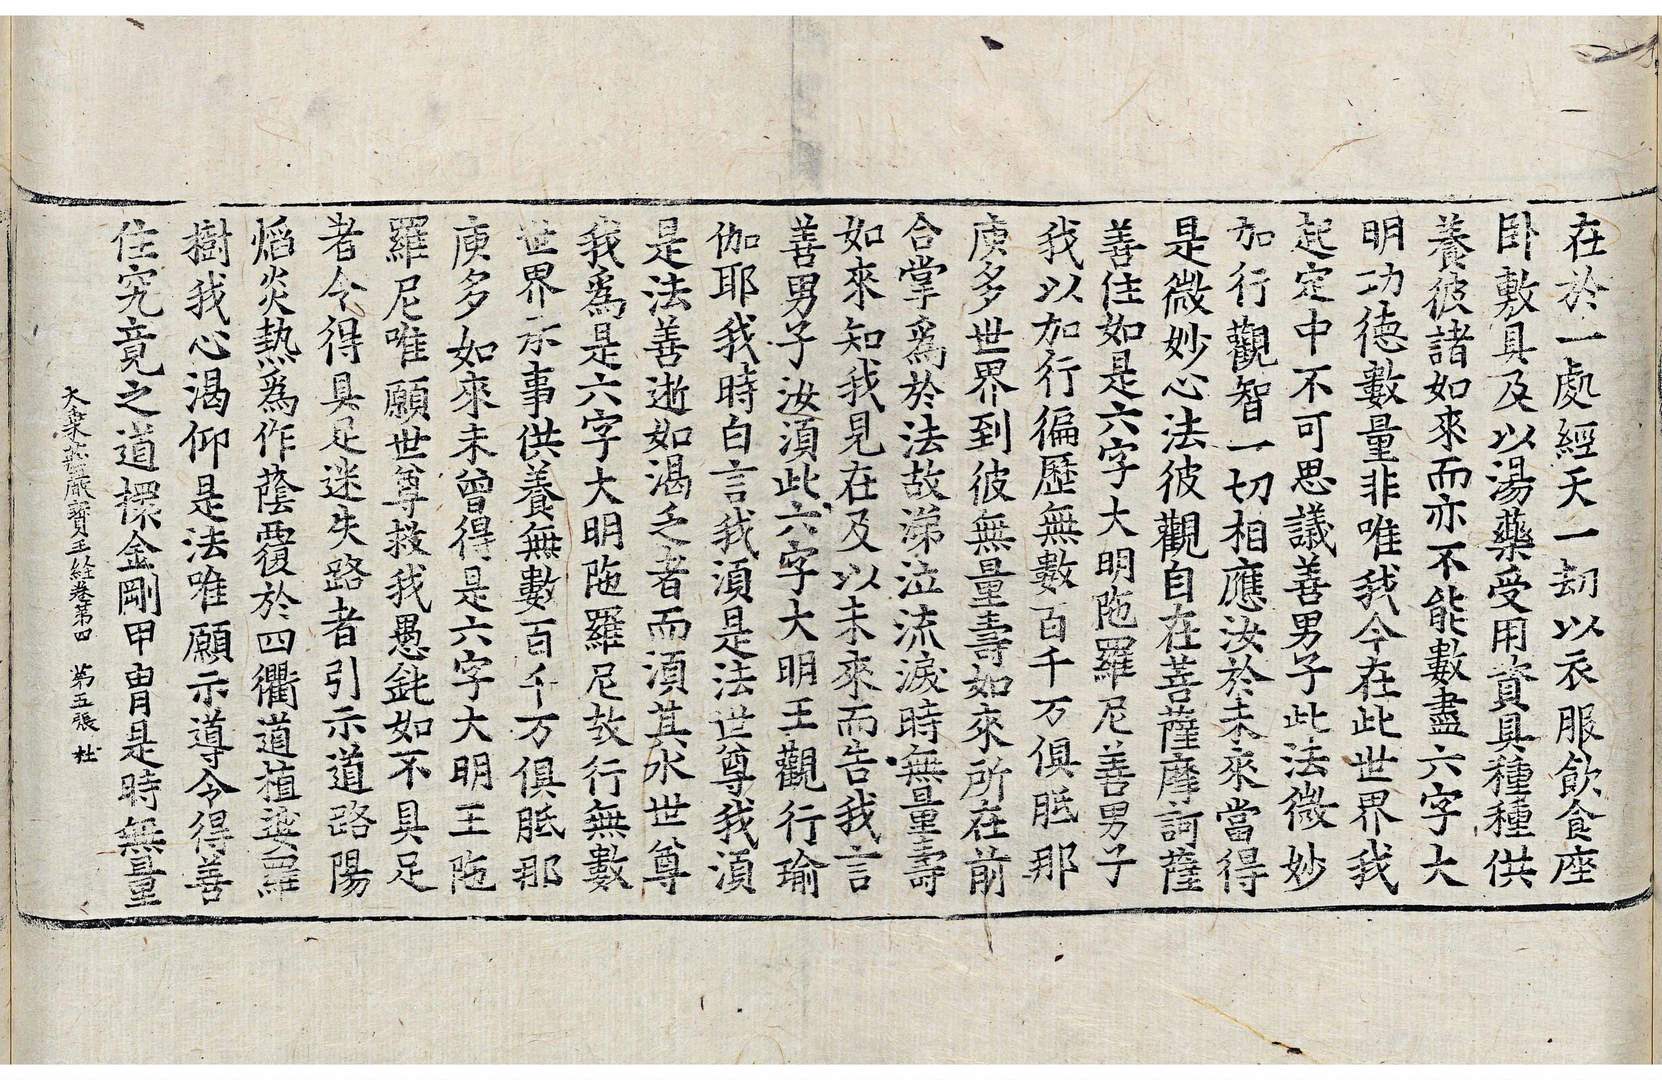 在於一處經天一劫以衣服飲食座
卧敷具及以湯藥受用資具種種供
養彼諸如來而亦不能數盡六字大
明功德數量非唯我今在此世界我
起定中不可思議善男子此法微妙
加行觀智一切相應汝於未來當得
是微妙心法彼觀自在菩薩摩訶薩
善住如是六字大明陁羅尼善男子
我以加行徧歷無數百千万俱胝那
庾多世界到彼無量壽如來所在前
合掌爲於法故涕泣流淚時無量壽
如來知我見在及以未來而告我言
善男子汝湏此六字大明王觀行瑜
伽耶我時白言我湏是法世尊我湏
是法善逝如渴乏者而湏其水世尊
我爲是六字大明陁羅尼故行無數
世界承事供養無數百千万俱胝那
庾多如來未曾得是六字大明王陁
羅尼唯願世尊救我愚鈍如不具足
者令得具足迷失路者引示道路陽
焰炎熱爲作蔭覆於四衢道植娑羅
樹我心渴仰是法唯願示導令得善
住究竟之道擐金剛甲胄是時無量
大乘莊嚴寶王經卷第四　第五張　杜